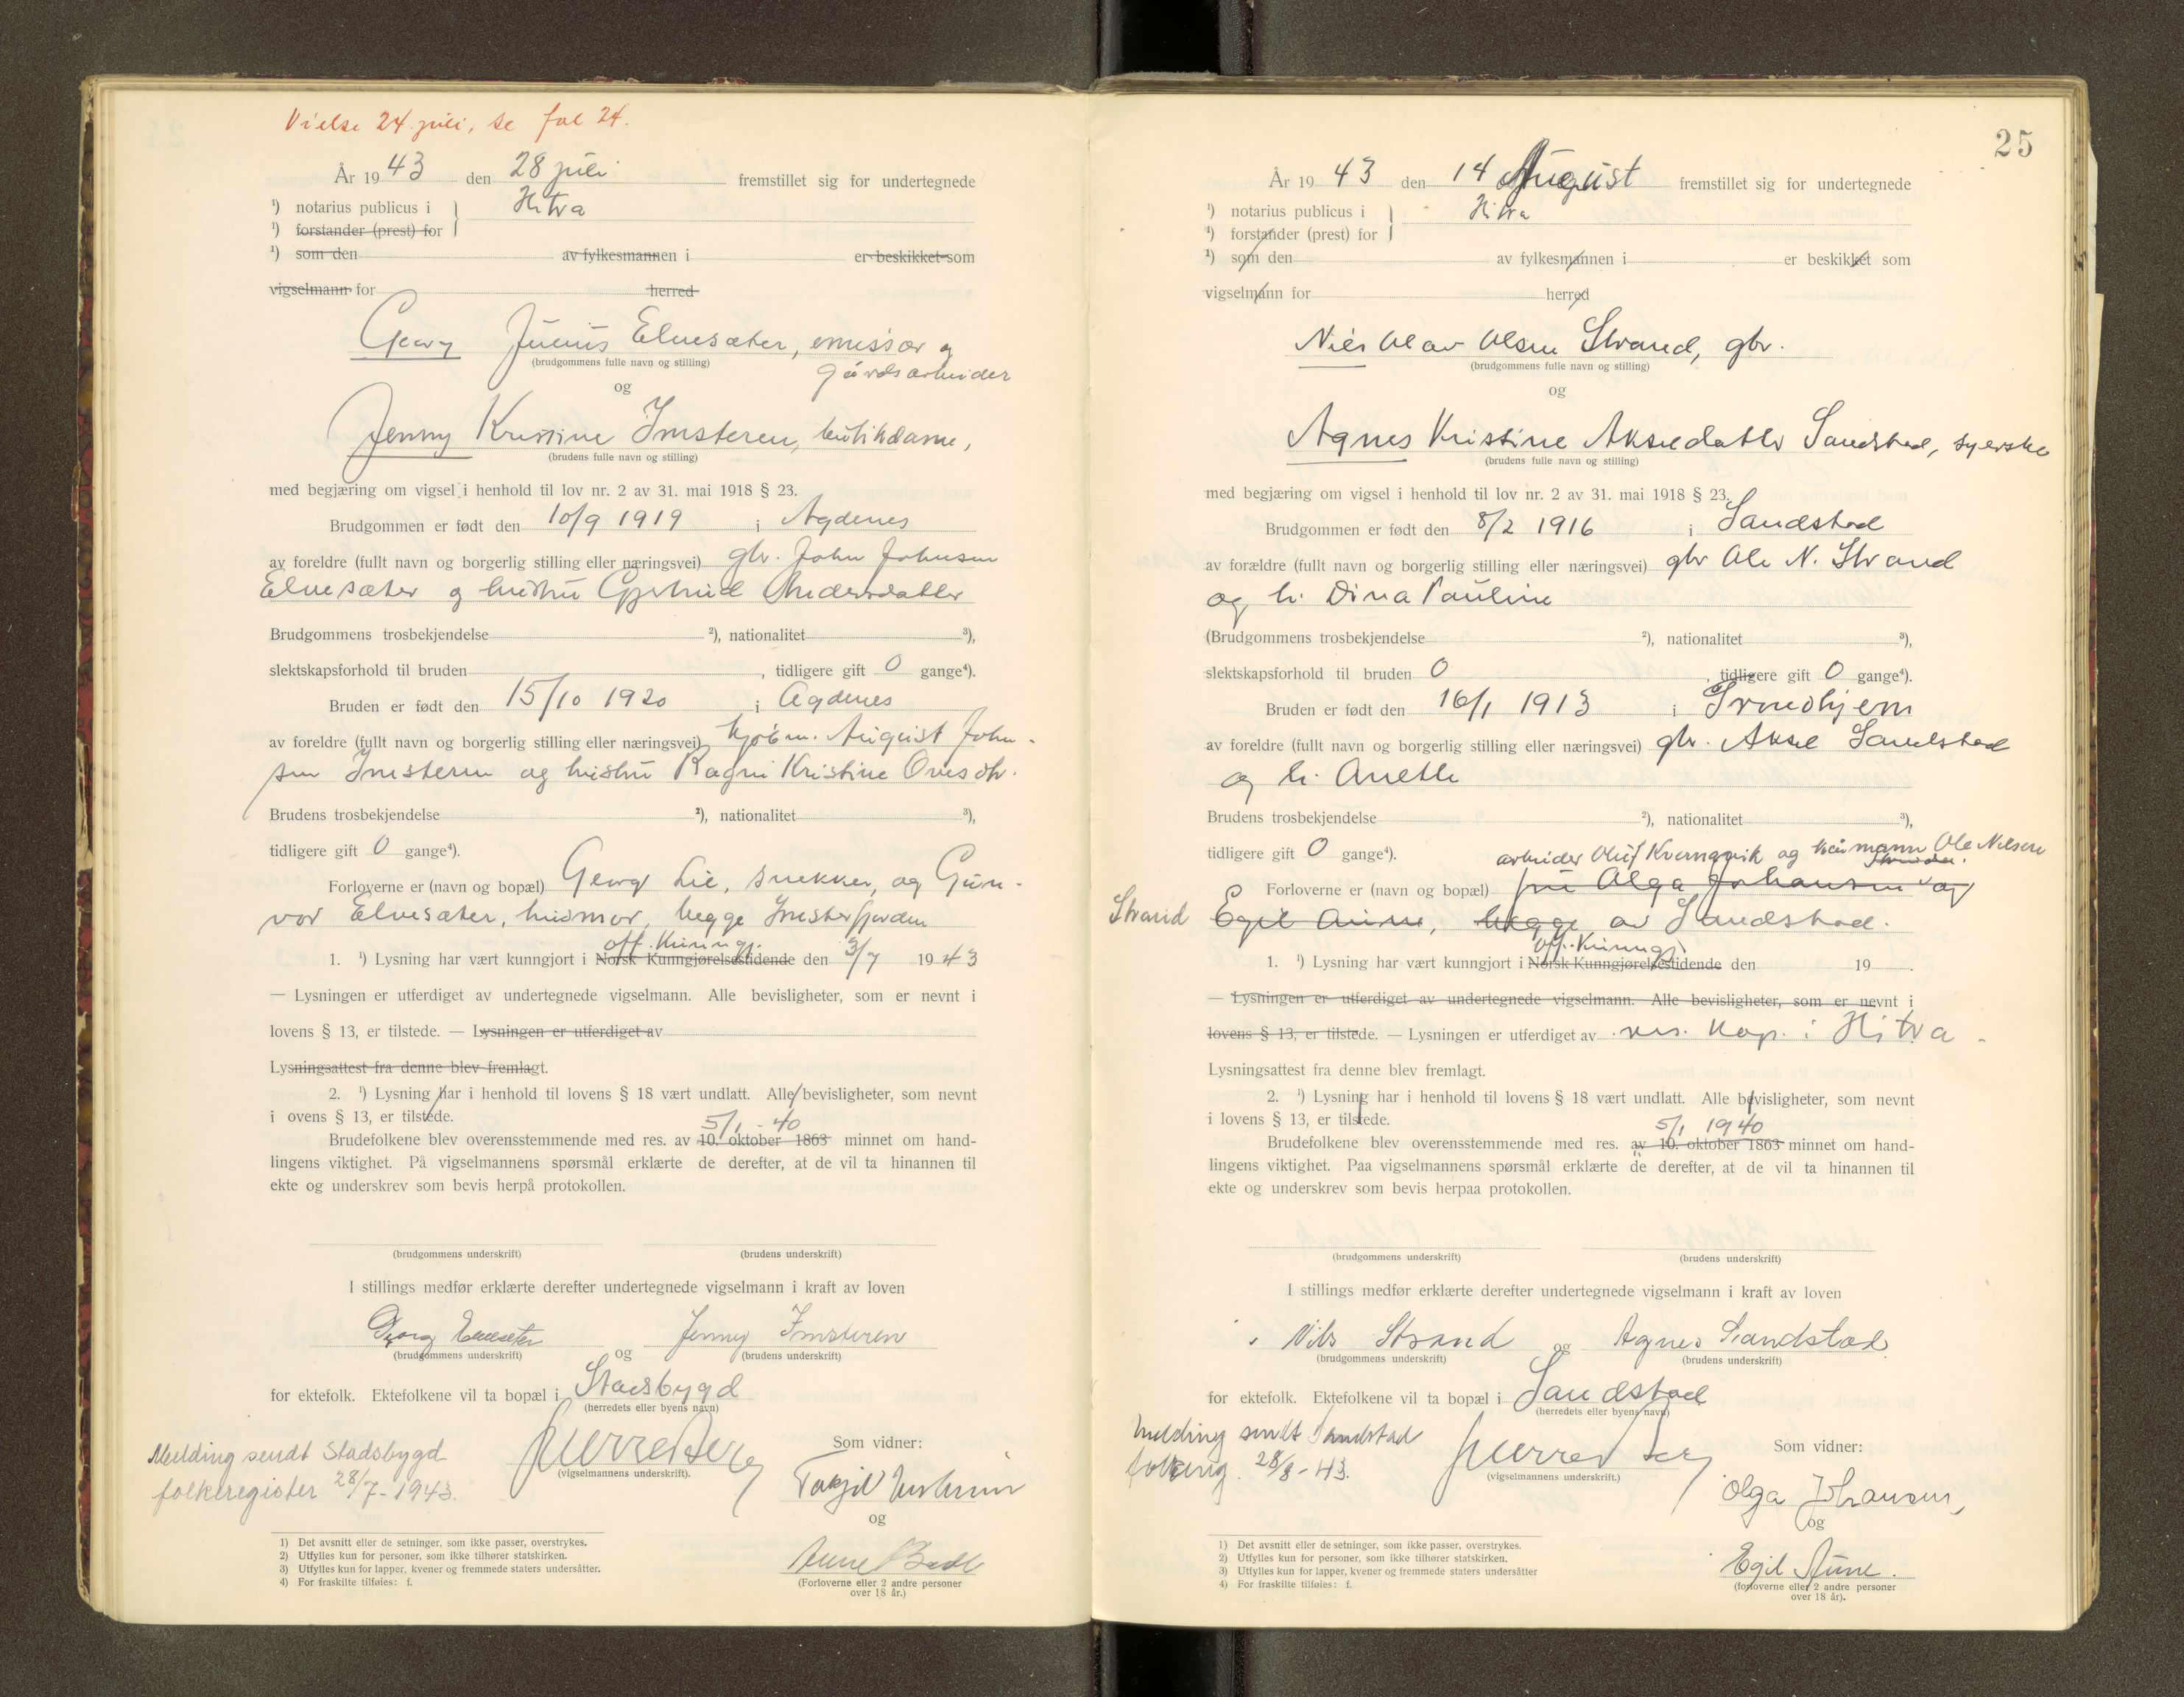 Vielse 24. juli, se fol 24.
År 1943 den 28 juli fremstillet sig for undertegnede
¹) notarius publicus i Hitra
¹) forstander (prest) for
¹) som den av fylkesmannen i er beskikket som
vigselmann for herred
Georg Julius Elvesæter, emissær og
(brudgommens fulle navn og stilling)
gårdsarbeider
og
Jenny Kristine Imsteren, butikdame,
(brudens fulle navn og stilling)
med begjæring om vigsel i henhold til lov nr. 2 av 31. mai 1918 § 23.
Brudgommen er født den 10/9 1919 i Agdenes
av foreldre (fullt navn og borgerlig stilling eller næringsvei) gbr. John Johnsen
Elvesæter og hustru Gjertrud Andersdatter
Brudgommens trosbekjendelse ²), nationalitet ³),
slektskapsforhold til bruden , tidligere gift 0 gange⁴).
Bruden er født den 15/10 1920 i Agdenes
av foreldre (fullt navn og borgerlig stilling eller næringsvei) kjøbm. August John-
sen Imsteren og hustru Ragni Kristine Ovesdtr.
Brudens trosbekjendelse ²), nationalitet ³),
tidligere gift 0 gange⁴).
Forloverne er (navn og bopæl) Georg Lie, snekker, og Gun-
vor Elvesæter, husmor, begge Imsterfjorden
off. Kunngj.
1. ¹) Lysning har vært kunngjort i Norsk Kunngjørelsestidende den 3/7 1943
— Lysningen er utferdiget av undertegnede vigselmann. Alle bevisligheter, som er nevnt i
lovens § 13, er tilstede. — Lysningen er utferdiget av
Lysningsattest fra denne blev fremlagt.
2. ¹) Lysning har i henhold til lovens § 18 vært undlatt. Alle bevisligheter, som nevnt
i ovens § 13, er tilstede.
5/1 - 40
Brudefolkene blev overensstemmende med res. av 10. oktober 1863 minnet om hand-
lingens viktighet. På vigselmannens spørsmål erklærte de derefter, at de vil ta hinannen til
ekte og underskrev som bevis herpå protokollen.
(brudgommens underskrift) (brudens underskrift)
I stillings medfør erklærte derefter undertegnede vigselmann i kraft av loven
Georg Elvesæter og Jenny Imsteren
(brudgommens underskrift) (brudens underskrift)
for ektefolk. Ektefolkene vil ta bopæl i Stadsbygd
(herredets eller byens navn)
Melding sendt Stadsbygd
folkeregister 28/7-1943.
(vigselmannens underskrift).
Som vidner:
og
(Forloverne eller 2 andre personer
over 18 år.)
1) Det avsnitt eller de setninger, som ikke passer, overstrykes.
2) Utfylles kun for personer, som ikke tilhører statskirken.
3) Utfylles kun for lapper, kvener og fremmede staters undersåtter.
4) For fraskilte tilføies: f.
25
År 1943 den 14 August fremstillet sig for undertegnede
¹) notarius publicus i Hitra
¹) forstander (prest) for
¹) som den av fylkesmannen i er beskikket som
vigselmann for herred
Nils Olav Olsen Strand, gbr.
(brudgommens fulle navn og stilling)
og
Agnes Kristine Akseldatter Sandstad, syerske
(brudens fulle navn og stilling)
med begjæring om vigsel i henhold til lov nr. 2 av 31. mai 1918 § 23.
Brudgommen er født den 8/2 1916 i Sandstad
av forældre (fullt navn og borgerlig stilling eller næringsvei) gbr Ole N. Strand
og h. Dina Pauline
(Brudgommens trosbekjendelse ²), nationalitet ³),
slektskapsforhold til bruden 0 , tidligere gift 0 gange⁴).
Bruden er født den 16/1 1913 i Trondhjem
av foreldre (fullt navn og borgerlig stilling eller næringsvei) gbr. Aksel Sandstad
og h. Anette
Brudens trosbekjendelse ²), nationalitet ³),
tidligere gift 0 gange⁴).
arbeider Oluf Kvernavik og kårmann Ole Nilsen
Forloverne er (navn og bopæl) fru Olga Johansen og
Strand Egil Aune, begge av Sandstad.
off. Kunngj
1. ¹) Lysning har vært kunngjort i Norsk Kunngjørelsestidende den 19 .
— Lysningen er utferdiget av undertegnede vigselmann. Alle bevisligheter, som er nevnt i
lovens § 13, er tilstede. — Lysningen er utferdiget av res. kap. i Hitra.
Lysningsattest fra denne blev fremlagt.
2. ¹) Lysning har i henhold til lovens § 18 vært undlatt. Alle bevisligheter, som nevnt
i lovens § 13, er tilstede.
5/1 1940
Brudefolkene blev overensstemmende med res. av 10. oktober 1863 minnet om hand-
lingens viktighet. Paa vigselmannens spørsmål erklærte de derefter, at de vil ta hinannen til
ekte og underskrev som bevis herpaa protokollen.
(brudgommens underskrift) (brudens underskrift)
I stillings medfør erklærte derefter undertegnede vigselmann i kraft av loven
Nils Strand og Agnes Sandstad
(brudgommens underskrift) (brudens underskrift)
for ektefolk. Ektefolkene vil ta bopæl i Sandstad
(herredets eller byens navn)
Melding sendt Sandstad
folkereg. 28/8-43.
(vigselmannens underskrift.)
Som vidner:
Olga Johansen,
og
Egil Aune.
(forloverne eller 2 andre personer
over 18 år).
1) Det avsnitt eller de setninger, som ikke passer, overstrykes.
2) Utfylles kun for personer, som ikke tilhører statskirken.
3) Utfylles kun for lapper, kvener og fremmede staters undersåtter
4) For fraskilte tilføies: f.